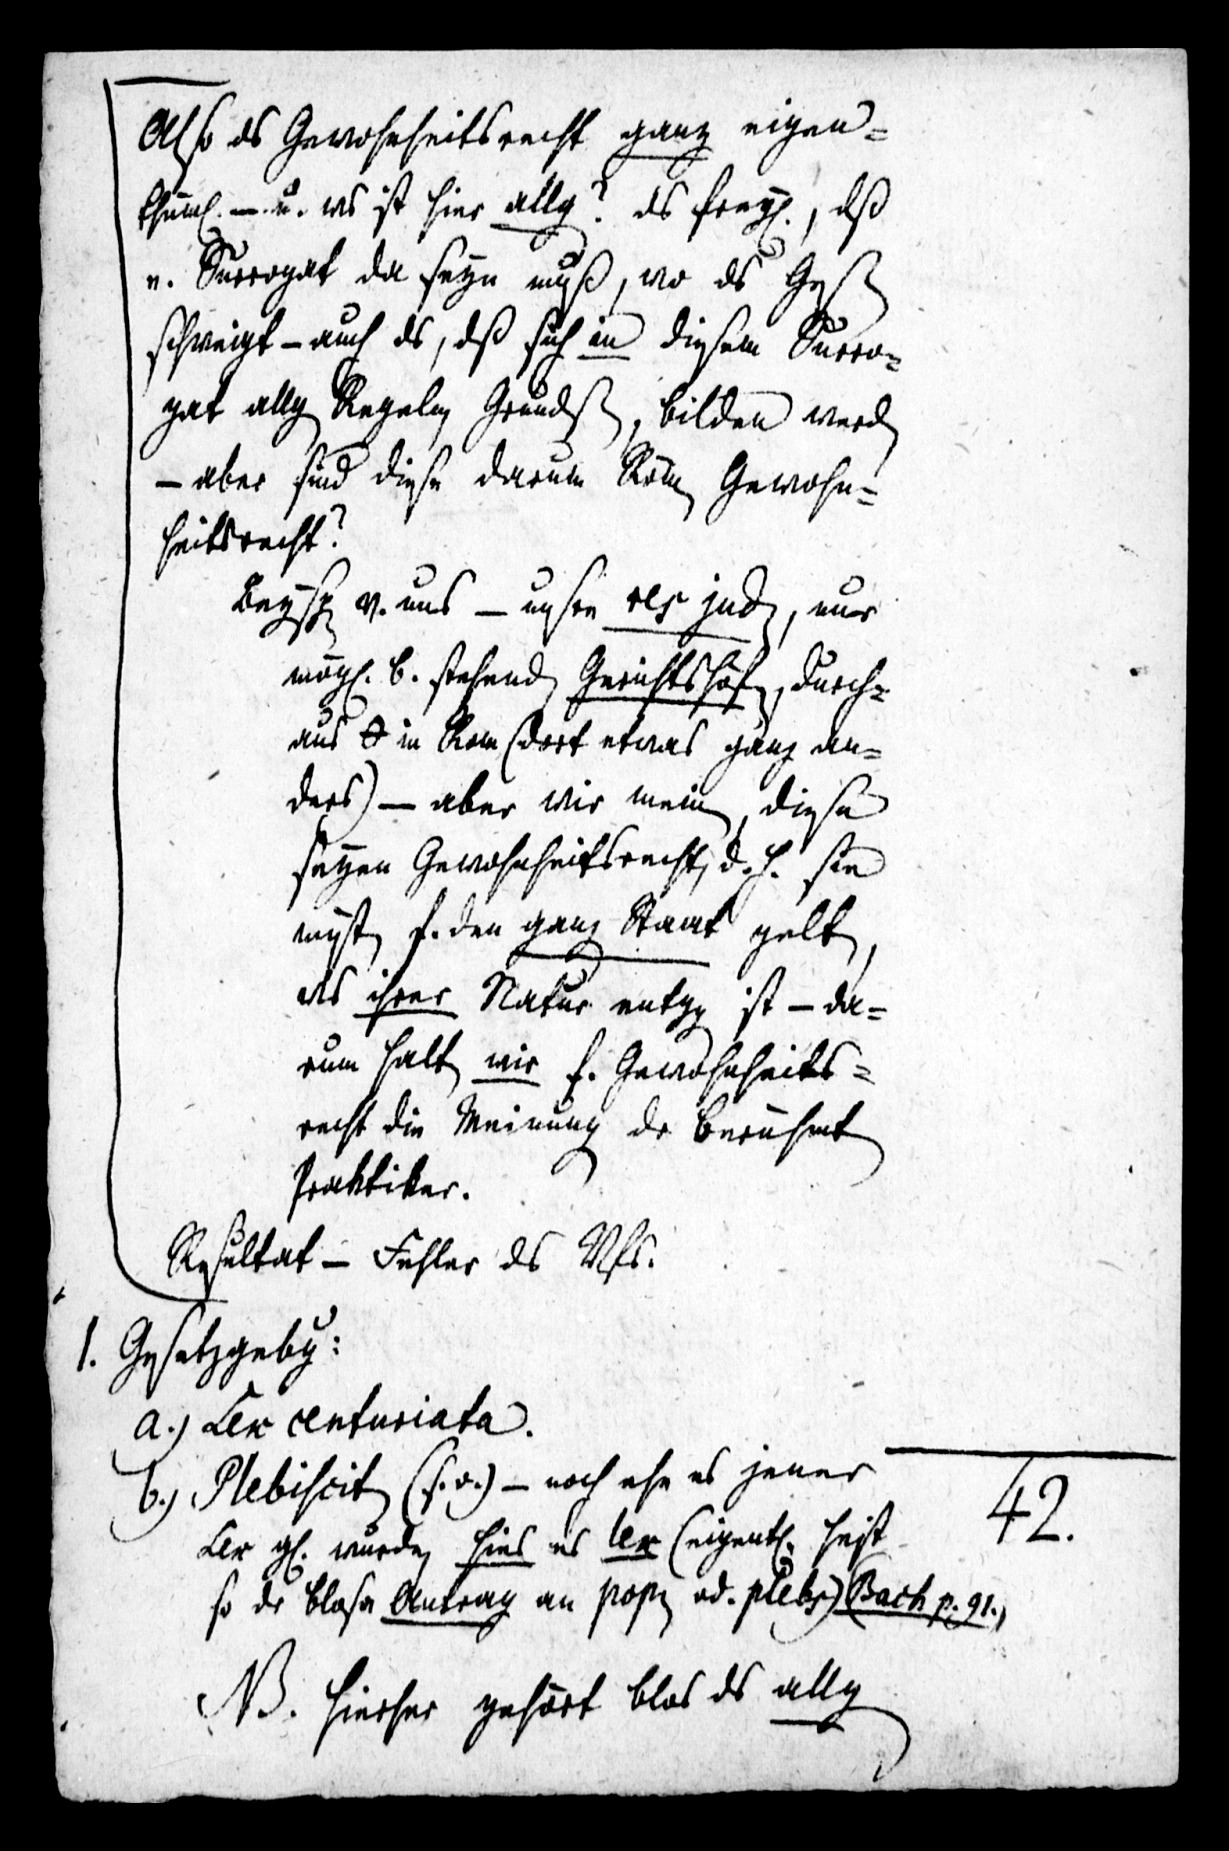 Also ds Gewohnheitsrecht ganz eigen=
thüml. — u. ws ist hier allg? ds freyl., dß
e. Surrogat da seyn muß, wo ds Gesetz
schweigt — auch ds, dß sich in diesem Surro=
gat allg Regeln Grundsß, bilden werd
— aber sind diese darum Röm Gewohn=
heitsrecht?
Beysp v. uns — unsre res jud, nur
mögl. b. stehend Gerichtshöf, durch=
aus in Rom (dort etwas ganz an=
ders) — aber wir mein, diese
seyen Gewohnheitsrecht, d. h. sie
müßt f. den ganz Staat gelt,
ws ihrer Natur entgg ist — da=
rum halt wir f. Gewohnheits=
recht die Meinung dr berühmt
Praktiker.
Resultat — Fehler ds Vfs.
1. Gesetzgebg:
a.) Lex centuriata.
b.) Plebiscit (s. o.) — noch ehe es jener
Lex gl. wurde, hies es lex (eigentl. heist
so dr blose Antrag an pop od. plebs) (Bach p. 91.)
42.
NB. hierher gehört blos ds allg